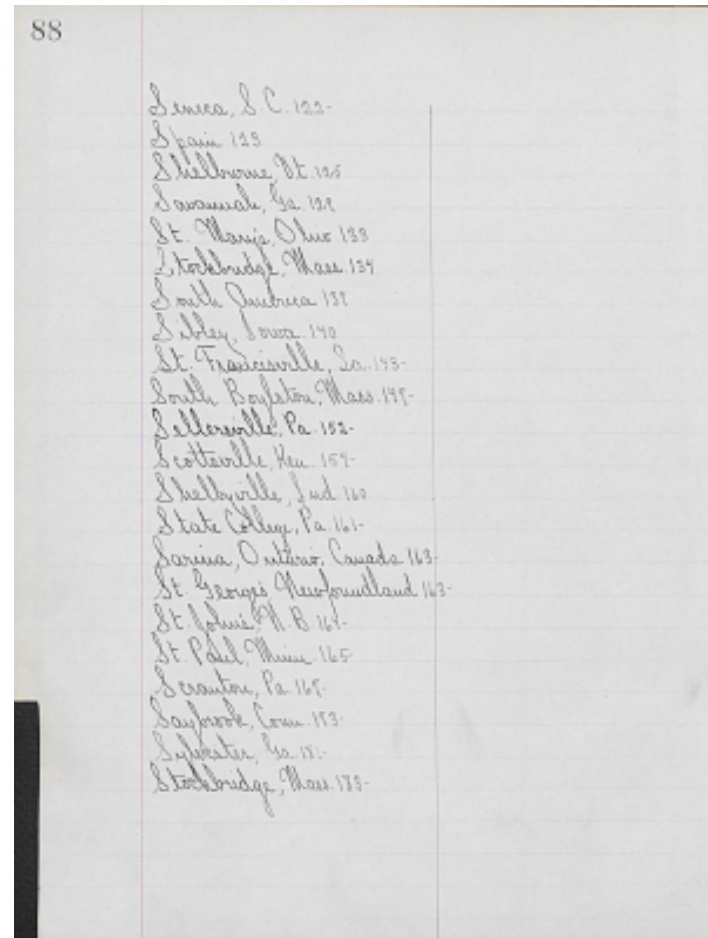 88
Seneca, S.C. 122-
Spain 123
Shelburne, Vt. 125
Savannah, Ga.
St. Mary's, Ohio 133
Stockbridge, Mass. 134
South America
Sibley, Iowa. 140
St. Francisville, La. 143-
South Boylston, Mass.
Sellersville, Pa. 152-
Scottsville, Ken.
Shelbyville, Ind 160
State College, Pa. 161-
Sarina, Ontario, Canada 163-
St. George's Newfoundland 163-
St. John's, N.B.
St. Paul, Minn. 165-
Scranton, Pa.
Saybrook, Conn.
Sylvester, Ga. 181-
Stockbridge, Mass. 183-